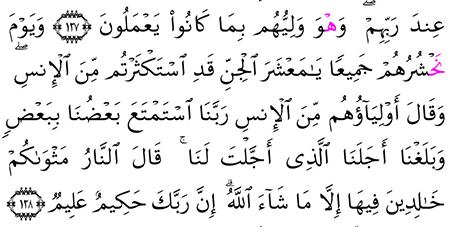 عِندَ رَبِّهِمْ ۖ وَهْوَ وَلِيُّهُم بِمَا كَانُواْ يَعْمَلُونَ ﴿١٢٧﴾ وَيَوْمَ
نَحْشُرُهُمْ جَمِيعًا يَٰمَعْشَرَ ٱلْجِنِّ قَدِ ٱسْتَكْثَرْتُم مِّنَ ٱلْإِنسِ ۖ
وَقَالَ أَوْلِيَآؤُهُم مِّنَ ٱلْإِنسِ رَبَّنَا ٱسْتَمْتَعَ بَعْضُنَا بِبَعْضٍ
وَبَلَغْنَا أَجَلَنَا ٱلَّذِى أَجَّلْتَ لَنَا ۚ قَالَ ٱلنَّارُ مَثْوَىٰكُمْ
خَٰلِدِينَ فِيهَا إِلَّا مَا شَآءَ ٱللَّهُ ۗ إِنَّ رَبَّكَ حَكِيمٌ عَلِيمٌ ﴿١٢٨﴾